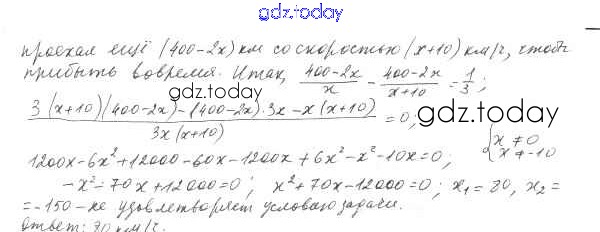 gdz.today
проехал ещё (400-2x) км со скоростью (x+10) км/ч, чтобы
прибыть вовремя. Итак, \frac{400-2x}{x} - \frac{400-2x}{x+10} = \frac{1}{3};
gdz.today
\frac{3(x+10)(400-2x)-(400-2x)·3x-x(x+10)}{3x(x+10)} = 0;
gdz.today
{x ≠ 0
x ≠ -10
1200x-6x²+12000-60x-1200x+6x²-x²-10x=0;
-x²-70x+12000=0; x²+70x-12000=0; x₁=80, x₂=
=-150-не удовлетворяет условию задачи.
Ответ: 80 км/ч.
gdz.today